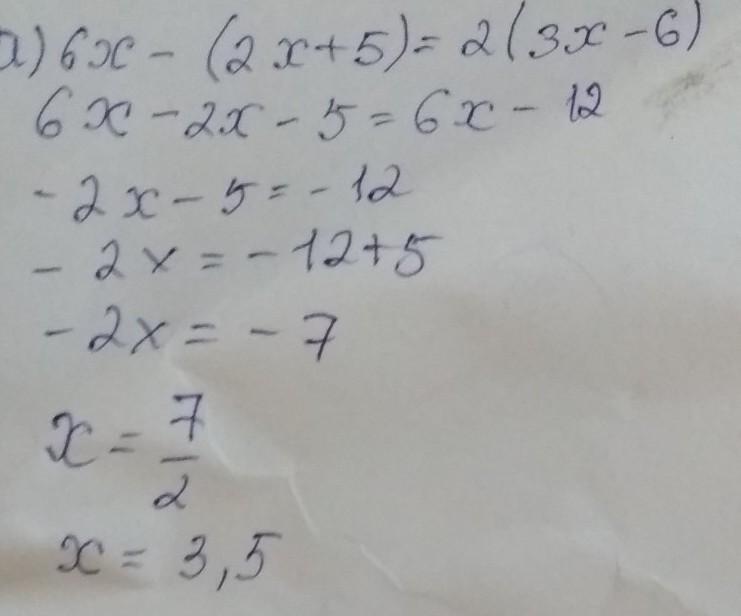 a) 6x - (2x+5) = 2(3x-6)
6x - 2x - 5 = 6x - 12
-2x - 5 = -12
-2x = -12+5
-2x = -7
x = 7/2
x = 3,5